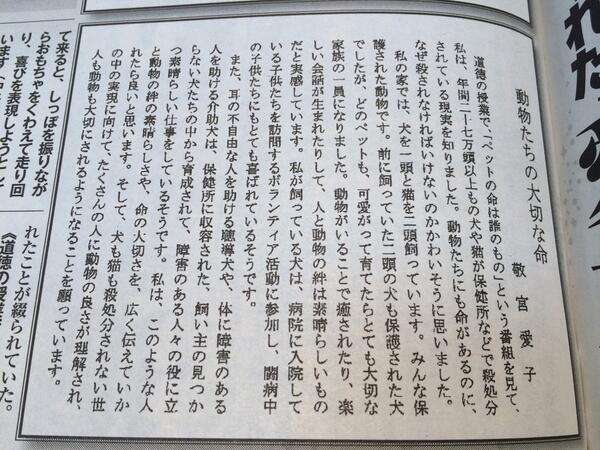 れた
動物たちの大切な命
敬宮愛子
道徳の授業で、「ペットの命は誰のもの」という番組を見て、
私は、年間二十七万頭以上もの犬や猫が保健所などで殺処分
されている現実を知りました。動物たちにも命があるのに、
なぜ殺されなければいけないのかかわいそうに思いました。
私の家では、犬を一頭と猫を二頭飼っています。みんな保
護された動物です。前に飼っていた二頭の犬も保護された犬
でしたが、どのペットも、可愛がって育てたらとても大切な
家族の一員になりました。動物がいることで癒されたり、楽
しい会話が生まれたりして、人と動物の絆は素晴らしいもの
だと実感しています。私が飼っている犬は、病院に入院して
いる子供たちを訪問するボランティア活動に参加し、闘病中
の子供たちにもとても喜ばれているそうです。
また、耳の不自由な人を助ける聴導犬や、体に障害のある
人を助ける介助犬は、保健所に収容された、飼い主の見つか
らない犬たちの中から育成されて、障害のある人々の役に立
つ素晴らしい仕事をしているそうです。私は、このような人
と動物の絆の素晴らしさや、命の大切さを、広く伝えていか
れたら良いと思います。そして、犬も猫も殺処分されない世
の中の実現に向けて、たくさんの人に動物の良さが理解され、
人も動物も大切にされるようになることを願っています。
て来ると、しっぽを振りなが
らおもちゃをくわえて走り回
り、喜びを表現しようとし
います
れたことが綴られていた。
《道徳の授業